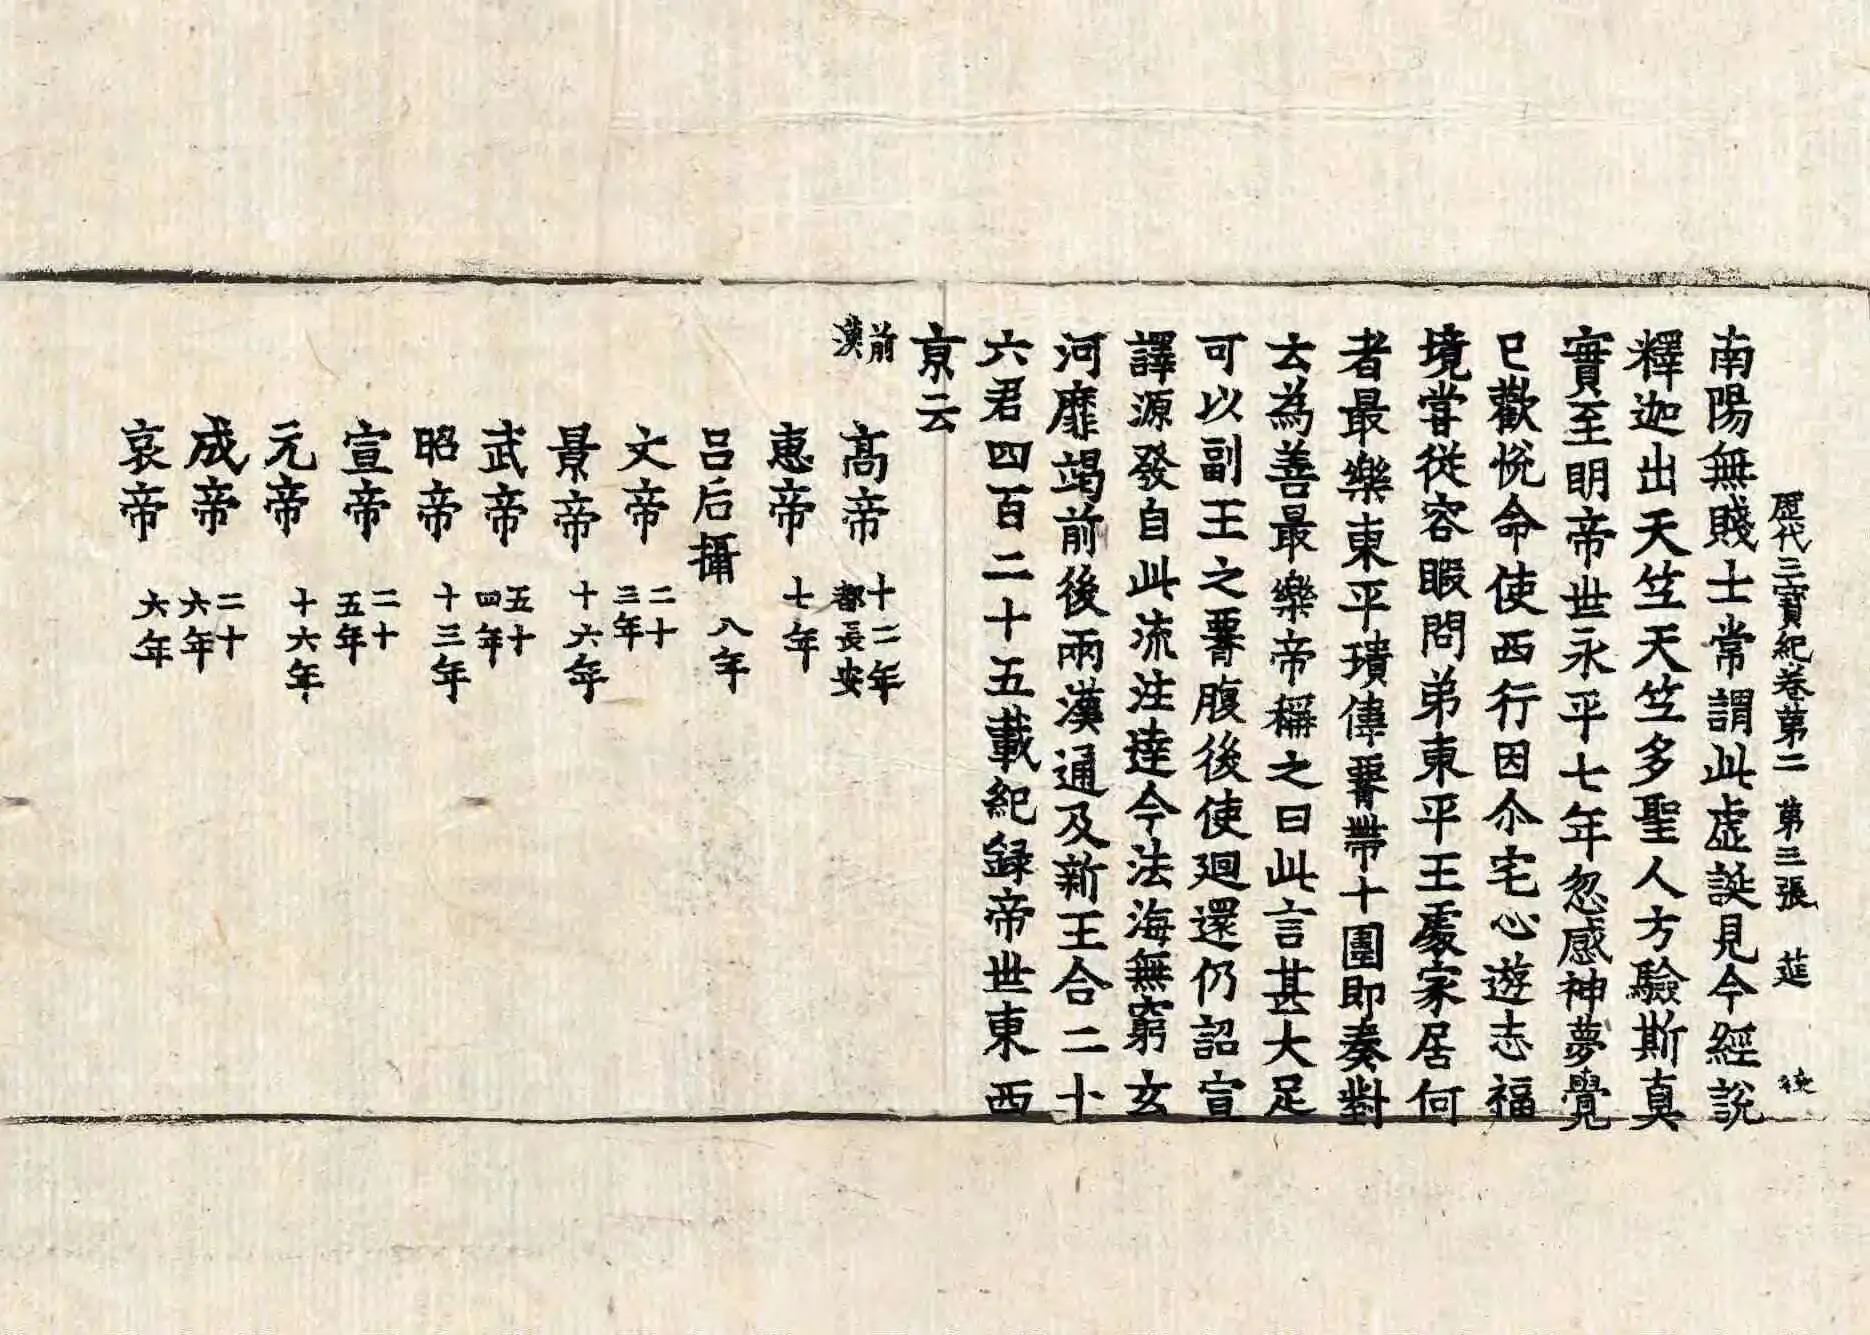 歷代三寶紀卷第二 第三張 莚 𢓜
南陽無賤士常謂此虛誕見今經說
釋迦出天竺天竺多聖人方驗斯真
實至明帝世永平七年忽感神夢覺
已歡悅命使西行因尒宅心遊志福
境嘗從容暇問弟東平王處家居何
者最樂東平瓌偉𦝫帶十圍即奏對
去為善最樂帝稱之曰此言甚大足
可以副王之𦝫腹後使迴還仍詔宣
譯源發自此流注達今法海無窮玄
河靡竭前後兩漢通及新王合二十
六君四百二十五載紀錄帝世東西
京云
前漢 高帝 十二年都長安
惠帝 七年
呂后攝 八年
文帝 二十三年
景帝 十六年
武帝 五十四年
昭帝 十三年
宣帝 二十五年
元帝 十六年
成帝 二十六年
哀帝 六年